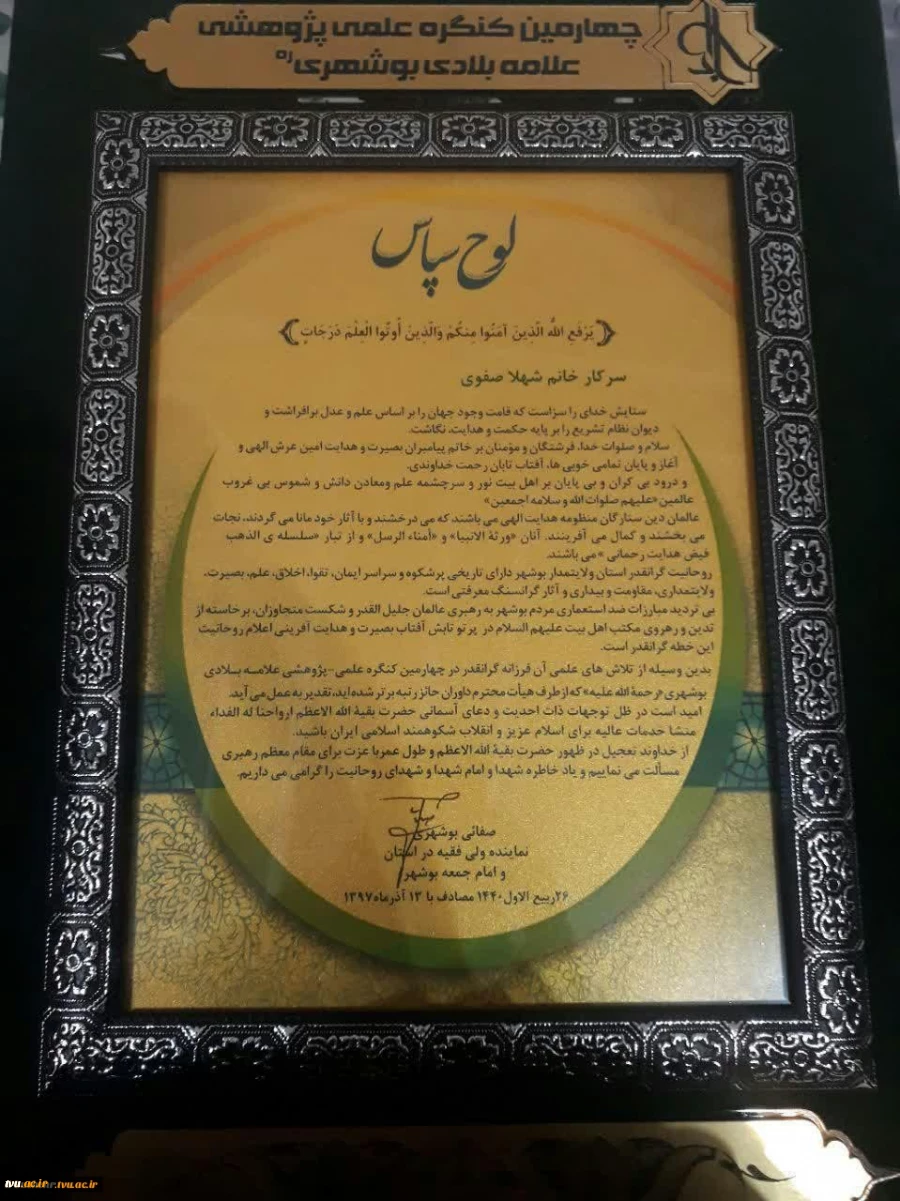 چهارمین کنگره علمی پژوهشی
علامه بلادی بوشهری ره
لوح سپاس
یَرْفَعِ اللَّهُ الَّذِینَ آمَنُوا مِنکُمْ وَالَّذِینَ أُوتُوا الْعِلْمَ دَرَجَاتٍ
سرکار خانم شهلا صفوی
ستایش خدای را سزاست که قامت وجود جهان را بر اساس علم و عدل برافراشت و
دیوان نظام تشریع را بر پایه حکمت و هدایت، نگاشت.
سلام و صلوات خدا، فرشتگان و مؤمنان بر خاتم پیامبران بصیرت و هدایت امین عرش الهی و
آغاز و پایان تمامی خوبی ها، آفتاب تابان رحمت خداوندی.
و درود بی کران و بی پایان بر اهل بیت نور و سرچشمه علم ومعادن دانش و شموس بی غروب
عالمین «علیهم صلوات الله و سلامه اجمعین»
عالمان دین ستارگان منظومه هدایت الهی می باشند که می درخشند و با آثار خود مانا می گردند، نجات
می بخشند و کمال می آفرینند. آنان «ورثة الانبیا» و «أمناء الرسل» و از تبار «سلسله ی الذهب
فیض هدایت رحمانی» می باشند.
روحانیت گرانقدر استان ولایتمدار بوشهر دارای تاریخی پرشکوه و سراسر ایمان، تقوا، اخلاق، علم، بصیرت،
ولایتمداری، مقاومت و بیداری و آثار گرانسنگ معرفتی است.
بی تردید مبارزات ضد استعماری مردم بوشهر به رهبری عالمان جلیل القدر و شکست متجاوزان، برخاسته از
تدین و رهروی مکتب اهل بیت علیهم السلام در پرتو تابش آفتاب بصیرت و هدایت آفرینی اعلام روحانیت
این خطه گرانقدر است.
بدین وسیله از تلاش های علمی آن فرزانه گرانقدر در چهارمین کنگره علمی-پژوهشی علامه بلادی
بوشهری «رحمة الله علیه» که از طرف هیأت محترم داوران حائز رتبه برتر شده اید، تقدیر به عمل می آید.
امید است در ظل توجهات ذات احدیت و دعای آسمانی حضرت بقیة الله الاعظم ارواحنا له الفداء
منشا خدمات عالیه برای اسلام عزیز و انقلاب شکوهمند اسلامی ایران باشید.
از خداوند تعجیل در ظهور حضرت بقیة الله الاعظم و طول عمر با عزت برای مقام معظم رهبری
مسألت می نماییم و یاد خاطره شهدا و امام شهدا و شهدای روحانیت را گرامی می داریم.
صفائی بوشهری
نماینده ولی فقیه در استان
و امام جمعه بوشهر
۲۶ ربیع الاول ۱۴۴۰ مصادف با ۱۳ آذر ماه ۱۳۹۷
tvu.ac.ir